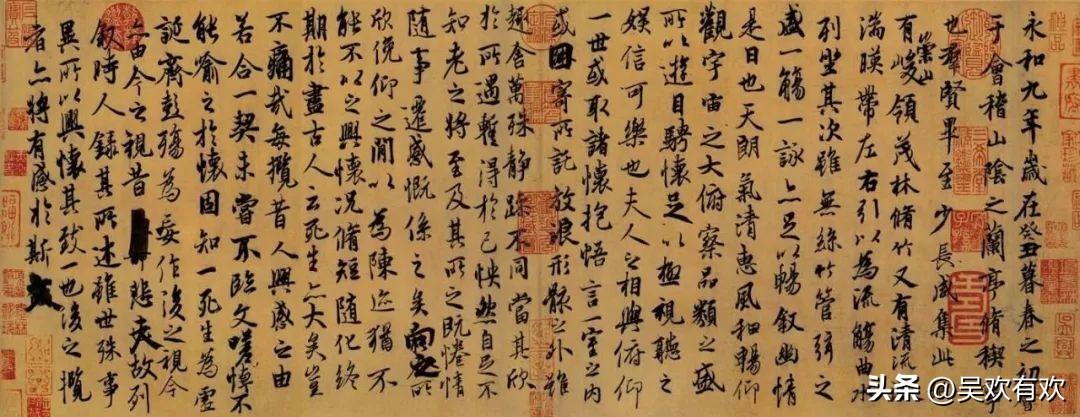 永和九年歲在癸丑暮春之初會
于會稽山陰之蘭亭脩稧事
也羣賢畢至少長咸集此
有崇山峻領茂林脩竹又有清流
湍暎帶左右引以為流觴曲水
列坐其次雖無絲竹管弦之
盛一觴一詠亦足以暢敘幽情
是日也天朗氣清惠風和暢仰
觀宇宙之大俯察品類之盛
所以遊目騁懷足以極視聽之
娛信可樂也夫人之相與俯仰
一世或取諸懷抱悟言一室之內
或因寄所託放浪形骸之外雖
趣舍萬殊靜躁不同當其欣
於所遇蹔得於己怏然自足不
知老之將至及其所之既惓情
隨事遷感慨係之矣向之所
欣俛仰之閒以為陳迹猶不
能不以之興懷況脩短隨化終
期於盡古人云死生亦大矣豈
不痛哉每攬昔人興感之由
若合一契未嘗不臨文嗟悼不
能喻之於懷固知一死生為虛
誕齊彭殤為妄作後之視今
亦由今之視昔悲夫故列
敘時人錄其所述雖世殊事
異所以興懷其致一也後之攬
者亦將有感於斯文
头条 @吴欢有欢